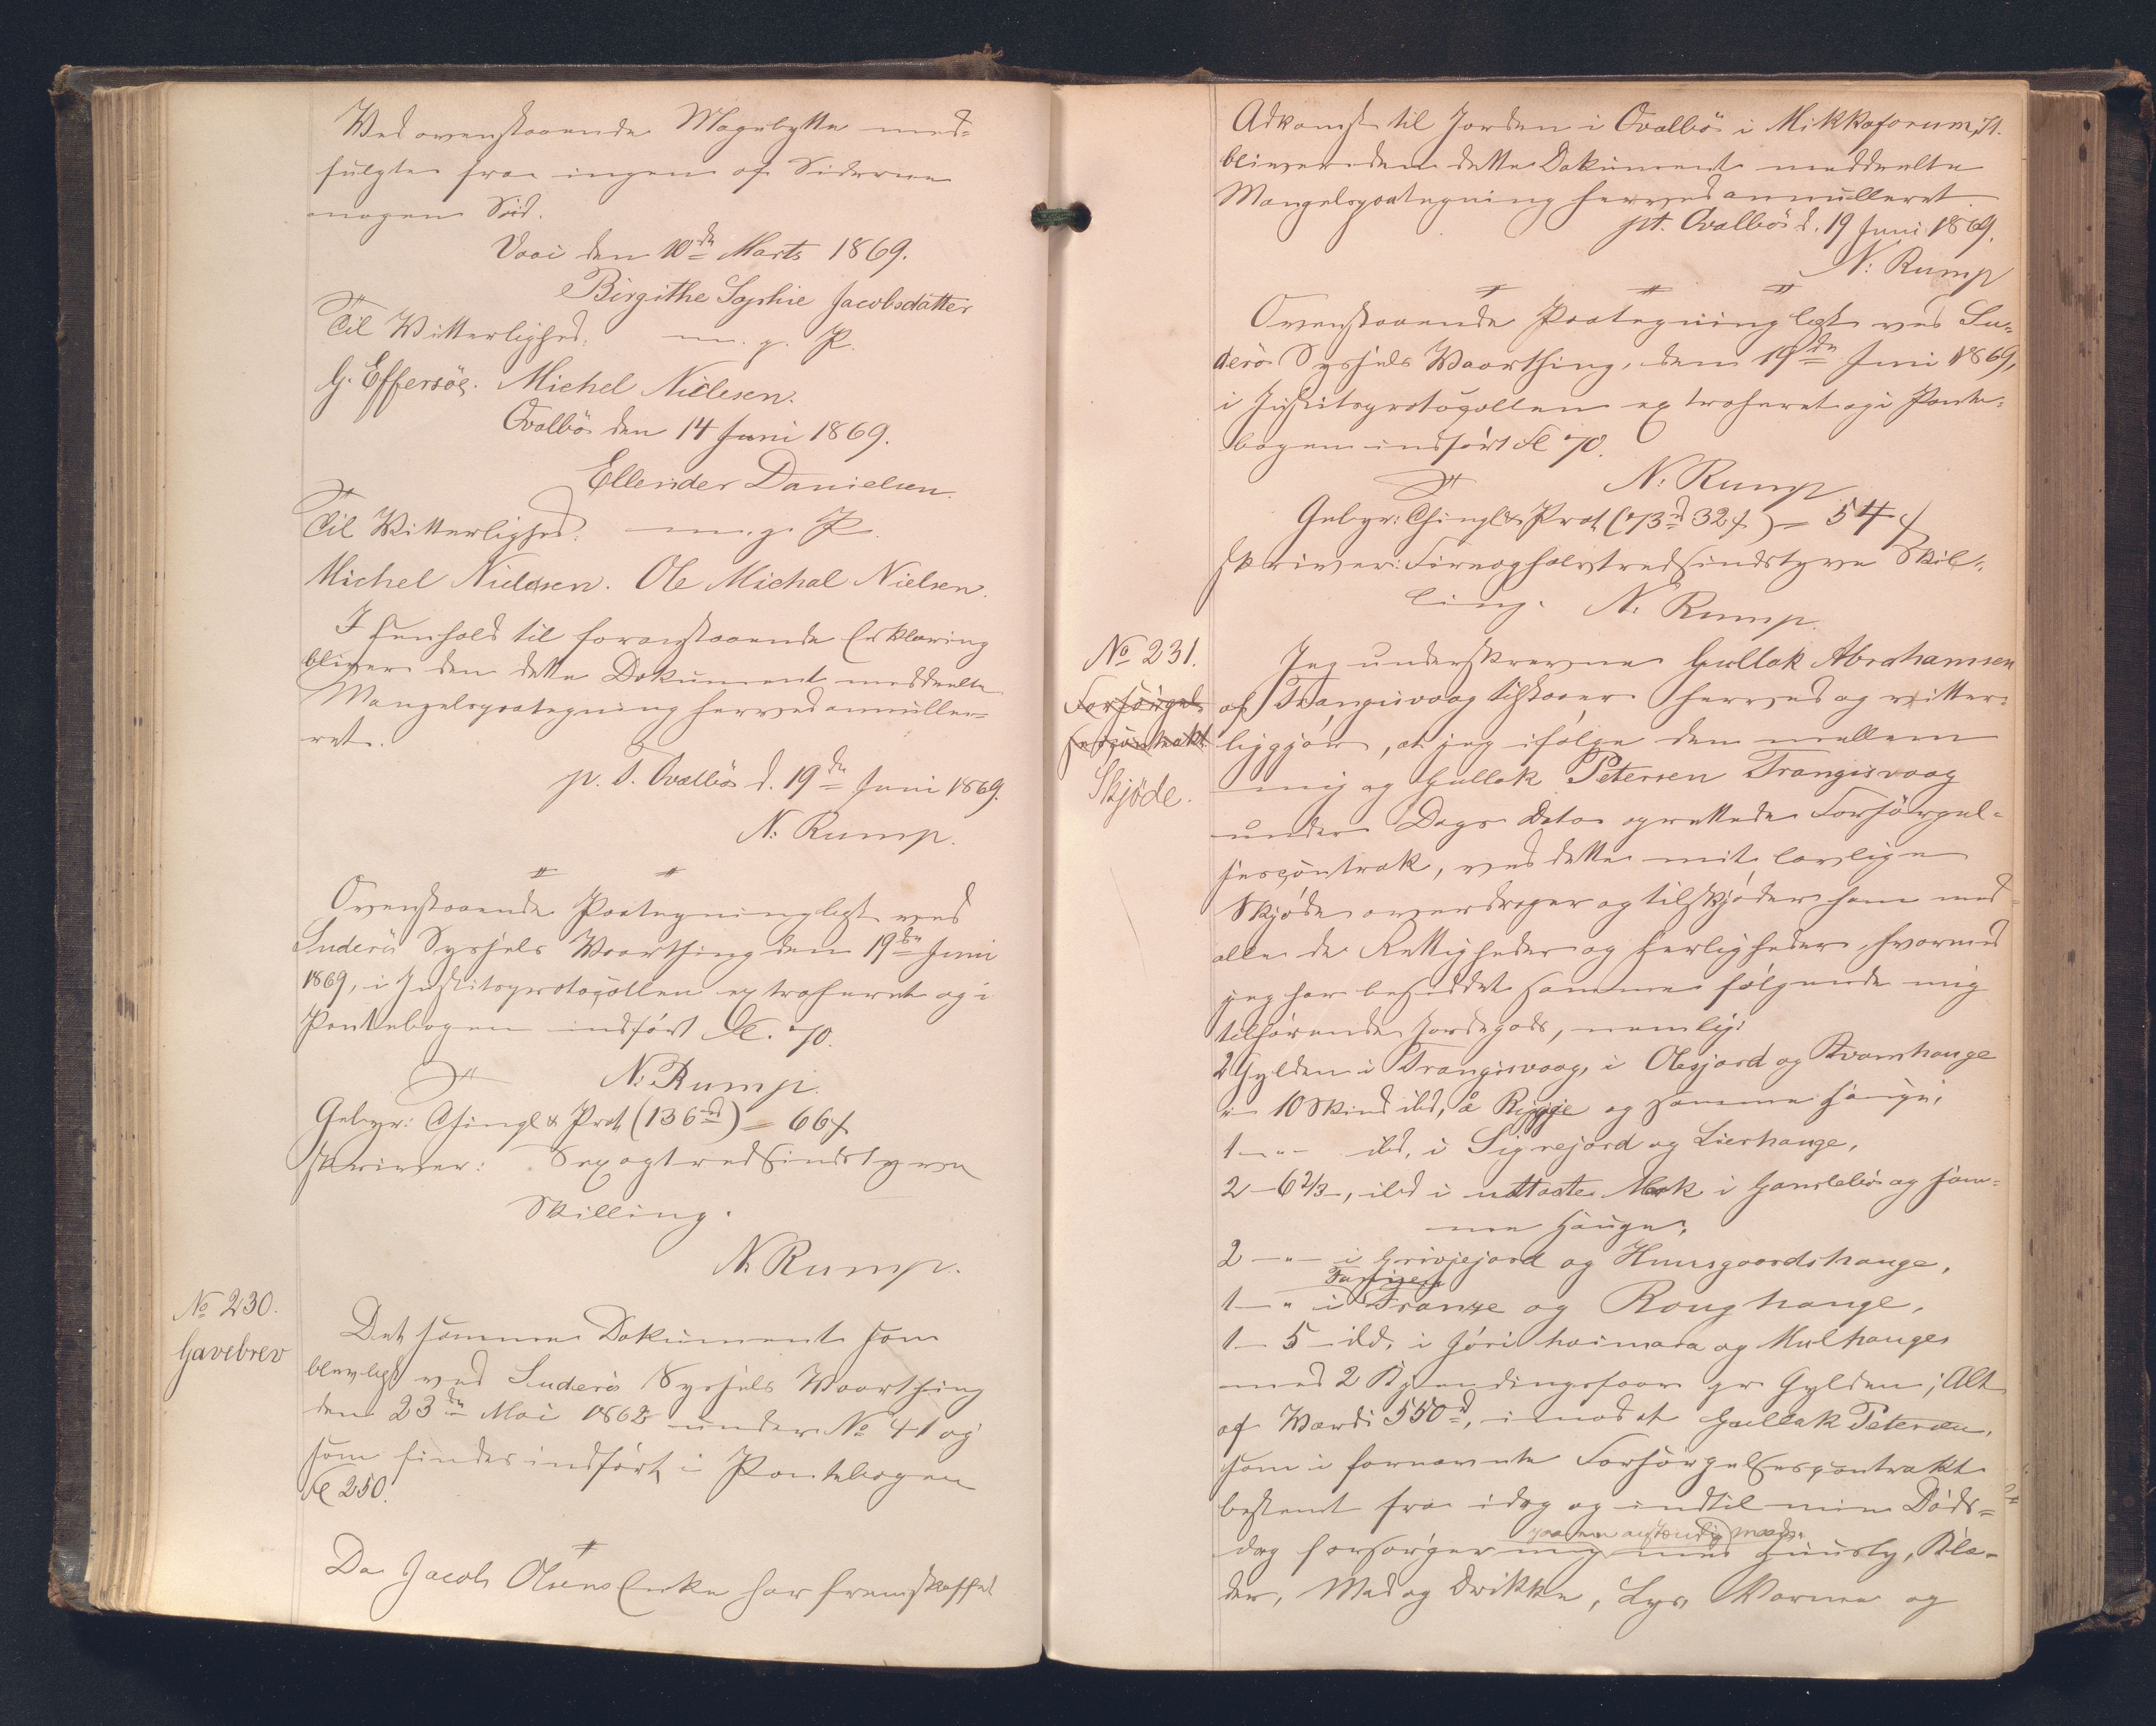 Ved ovenstaaende Magebytte med-
fulgte fra ingen af Siderne
nogen Sæd.
Vaai den 10de Marts 1869.
Birgithe Sophie Jacobsdatter
Til Vitterlighed: m. f. P.
G. Effersöe. Michel Nielesen.
Qvalbö den 14 Juni 1869.
Ellender Danielsen.
Til Vitterlighed: m. f. P.
Michel Nielesen. Ole Michal Nielsen.
I Henhold til foranstaaende Erklæring
bliver den dette Dokument meddeelte
Mangelspaategning herved annulle-
ret.
p. T. Qvalbö d. 19de Juni 1869.
N: Rump.
Ovenstaaende Paategning læst ved
Suderö Syssels Vaarthing den 19de Juni
1869, i Justitsprotocollen extraheret og i
Pantebogen indfört Fol. 70.
N: Rump.
Gebyr: Thingl & Prot (136rd) = 66 s
skriver: Sexogtredsindstyve
Skilling.
N. Rump.
No 230.
Gavebrev
Det samme Dokument som
blev læst ved Suderö Syssels Vaarthing
den 23de Mai 1862 under No 41 og
som findes indfört i Pantebogen
Fol 250.
Da Jacob Olsens Enke har fremskaffet
Adkomst til Jorden i Qvalbö i Mikkaforum,
bliver den dette Dokument meddeelte
Mangelspaategning herved annulleret.
pt. Qvalbö d. 19 Juni 1869.
N: Rump
Ovenstaaende Paategning læst ved Su-
derö Syssels Vaarthing, den 19de Juni 1869,
i Justitsprotocollen extraheret og i Pante-
bogen indfört Fol 70.
N: Rump
Gebyr: Thingl & Prot (73rd 32 s) = 54 s
skriver: Fireoghalvtredsindstyve Skil-
ling. N: Rump.
No 231.
Forsörgel-
sescontrakt
Skjöde.
Jeg underskrevne Gullak Abrahamsen
af Trangisvaag tilstaaer herved og vitter-
liggjör, at jeg ifölge den mellem
mig og Gullak Petersen Trangisvaag
under Dags Dato oprettede Forsörgel-
sescontrak, ved dette mit lovlige
Skjöde overdrager og tilskjöder ham med
alle de Rettigheder og Herligheder, hvormed
jeg har besiddet samme fölgende mig
tilhörende Jordegods, nemlig:
2 Gylden i Trangisvaag, i Olesjord og Kvamhauge
" - 10 Skind ibd, å Ryggje og samme Hauge,
1 - " - ibd, i Sigrejord og Lierhauge,
2 - 6 2/3 -, ibd i udtaste Mark i Gamlebö og sam-
me Hauge,
2 - " - i Grivjejord og Huusgaardshauge,
1 - " i Tranze og Roughauge,
1 - 5 - ibd. i Jóri haimara og Mulhauge
med 2 Kjendingsfaar pr Gylden; Alt
af Værdi 550rd, imod at Gullak Petersen,
som i fornævnte Forsörgelsescontrakt
bestemt fra idag og indtil min Döds-
dag forsörger mig paa en anstændig Maade med Huusly, Klæ-
der, Mad og Drikke, Lys, Varme og